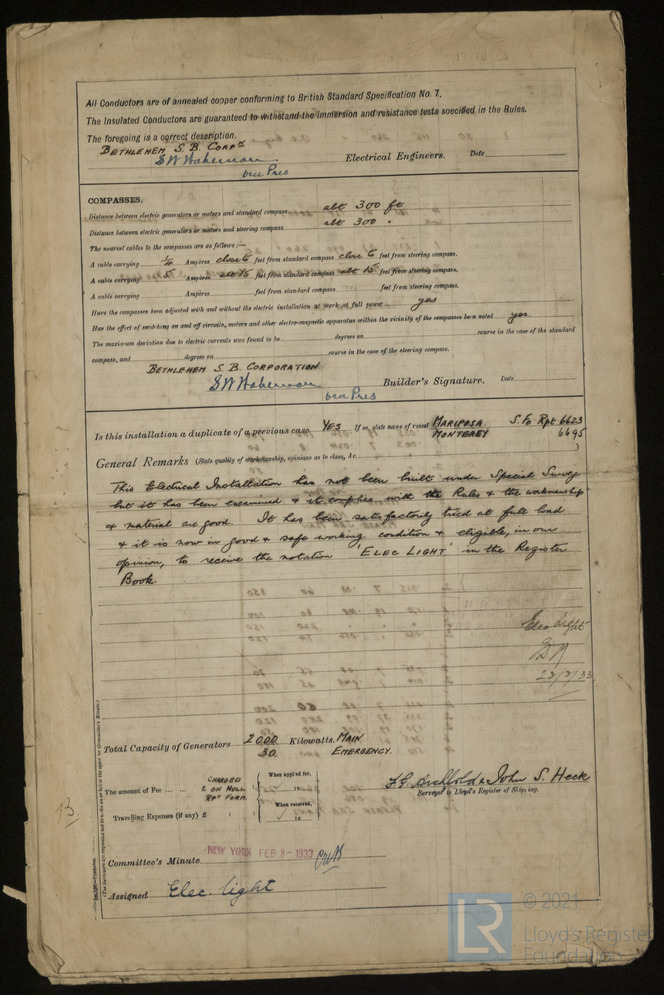 All Conductors are of annealed copper conforming to British Standard Specification No. 7.
The Insulated Conductors are guaranteed to withstand the immersion and resistance tests specified in the Rules.
The foregoing is a correct description.
BETHLEHEM S. B. CORPN
Electrical Engineers. Date
Vice Pres
COMPASSES.
Distance between electric generators or motors and standard compass abt 300 ft
Distance between electric generators or motors and steering compass abt 300 "
The nearest cables to the compasses are as follows:—
A cable carrying Ampères close to feet from standard compass close to feet from steering compass.
A cable carrying 5 Ampères abt 15 feet from standard compass abt 15 feet from steering compass.
A cable carrying Ampères feet from standard compass feet from steering compass.
Have the compasses been adjusted with and without the electric installation at work at full power yes
Has the effect of switching on and off circuits, motors and other electro-magnetic apparatus within the vicinity of the compasses been noted yes.
The maximum deviation due to electric currents was found to be degrees on course in the case of the standard
compass, and degrees on course in the case of the steering compass.
BETHLEHEM S. B. CORPORATION
Builder's Signature. Date
Vice Pres
Is this installation a duplicate of a previous case YES If so, state name of vessel MARIPOSA S. Fo Rpt 6623
MONTEREY 6695
General Remarks (State quality of workmanship, opinions as to class, &c.
This Electrical Installation has not been built under Special Survey
but it has been examined & it complies with the Rules & the workmanship
& material are good. It has been satisfactorily tried at full load
& it is now in good & safe working condition & eligible, in our
opinion, to receive the notation 'ELEC LIGHT' in the Register
Book.
Elec light
23/2/33
Total Capacity of Generators 2000 Kilowatts. MAIN
30. EMERGENCY.
The amount of Fee ... ... £ CHARGED ON HULL RPT FORM. When applied for,
When received,
Travelling Expenses (if any) £
L. G. Archbold & John S. Heck
Surveyor to Lloyd's Register of Shipping.
Committee's Minute NEW YORK FEB 8-1933
Assigned Elec. light
13.
LR
© 2021
Lloyd's Register
Foundation